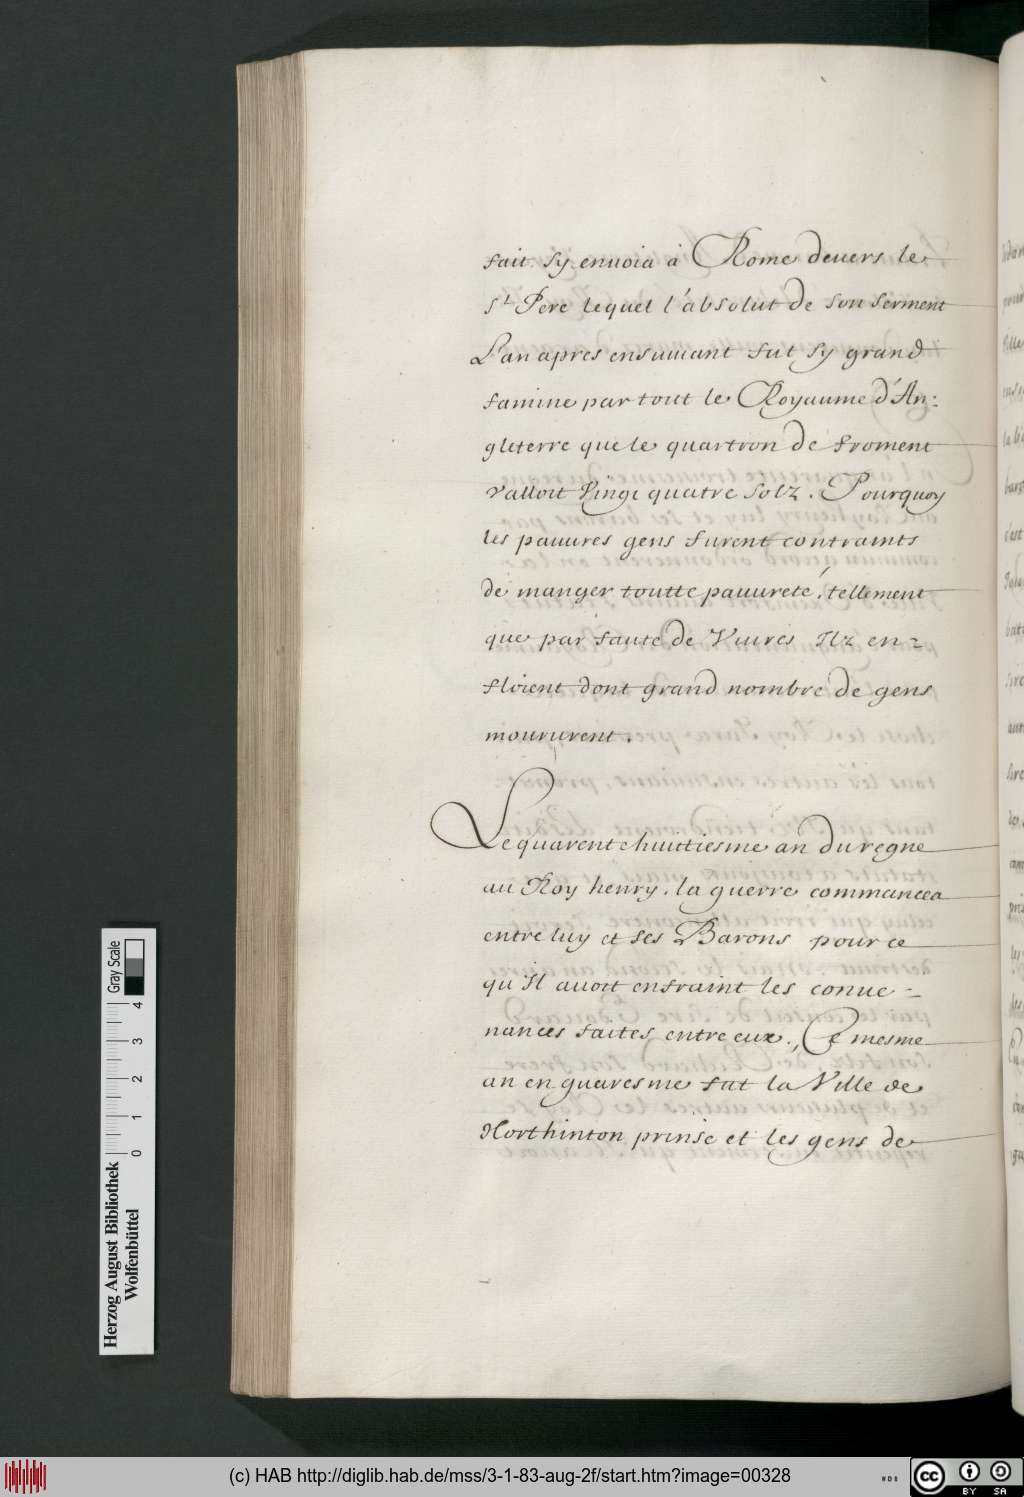 fait. sy envoia à Rome devers le
St. Pere lequel l'absolut de son serment
L'an apres ensuivant fut sy grand
famine par tout le Royaume d'An:
gleterre que le quartron de froment
valloit Vingt quatre solz. Pourquoy
les pauures gens furent contraints
de manger toutte pauureté, tellement
que par faute de Viures Ilz en=
floient dont grand nombre de gens
moururent.
Le quarentehuittiesme an du regne
au Roy henry. la guerre commancea
entre luy et ses Barons pour ce
qu'Il auoit enfraint les conue=
nances faites entre eux., Ce mesme
an en quaresme fut la Ville de
Northinton prinse et les gens de
Herzog August Bibliothek
Wolfenbüttel
0 1 2 3 4
Gray Scale
(c) HAB http://diglib.hab.de/mss/3-1-83-aug-2f/start.htm?image=00328
WDB
cc BY SA